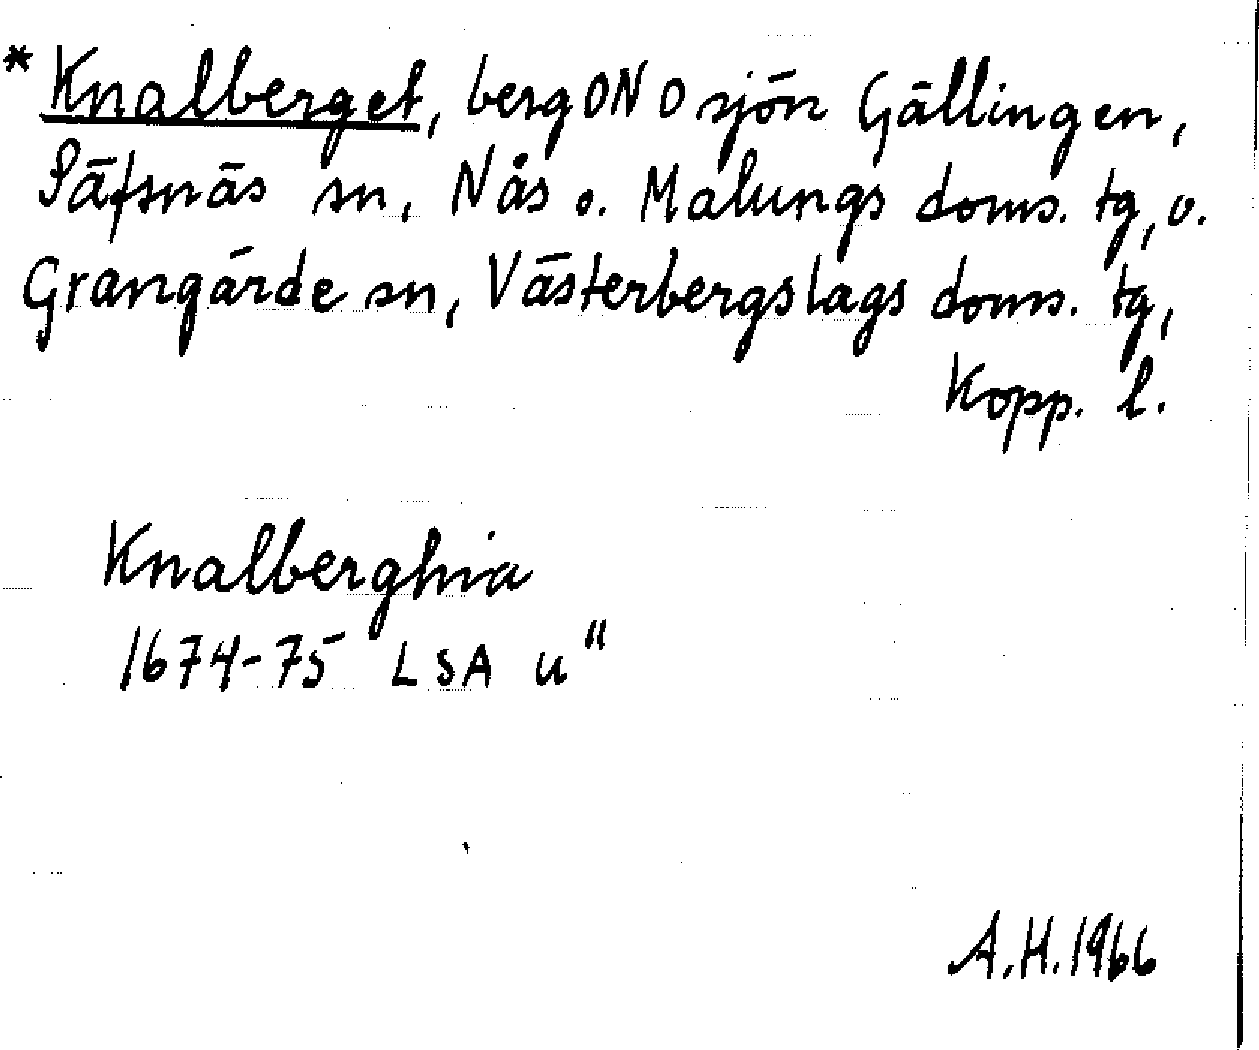 * Knalberget, berg ONO sjön Gällingen,
Säfsnäs sn, Nås o. Malungs doms. tg, o.
Grangärde sn, Västerbergslags doms. tg,
Kopp. l.
Knalberghia
1674-75 LSA u"
A.H. 1966